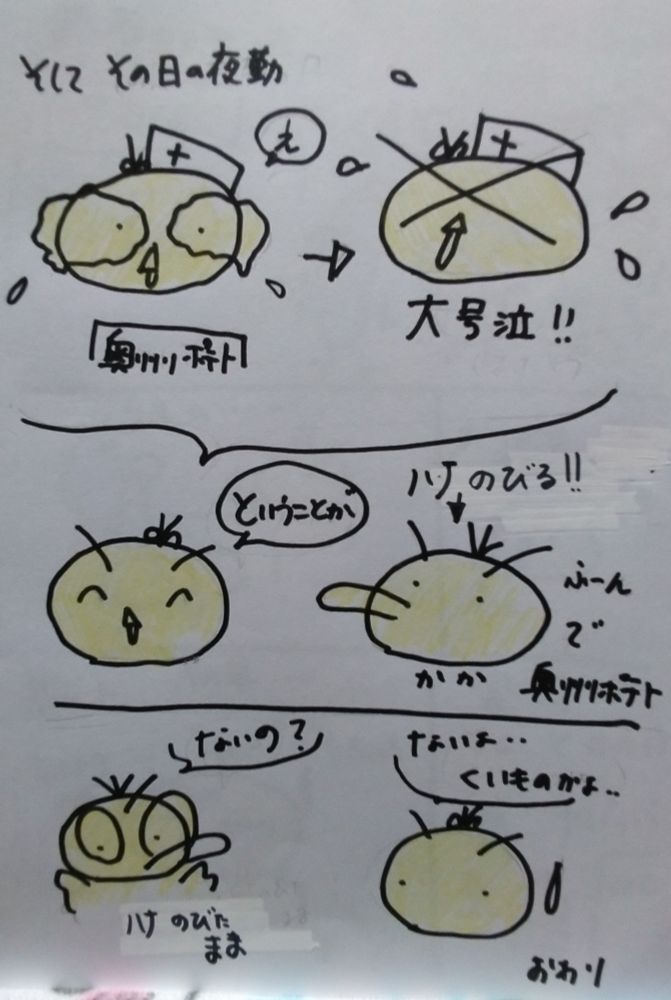 そして その日の夜勤
え
奥州ポテト
大号泣!!
ということが
ハナ のびる!!
ふーん
で
かか
奥州ポテト
ないの?
ないよ‥
くいものかよ‥
ハナ のびた
まま
おわり